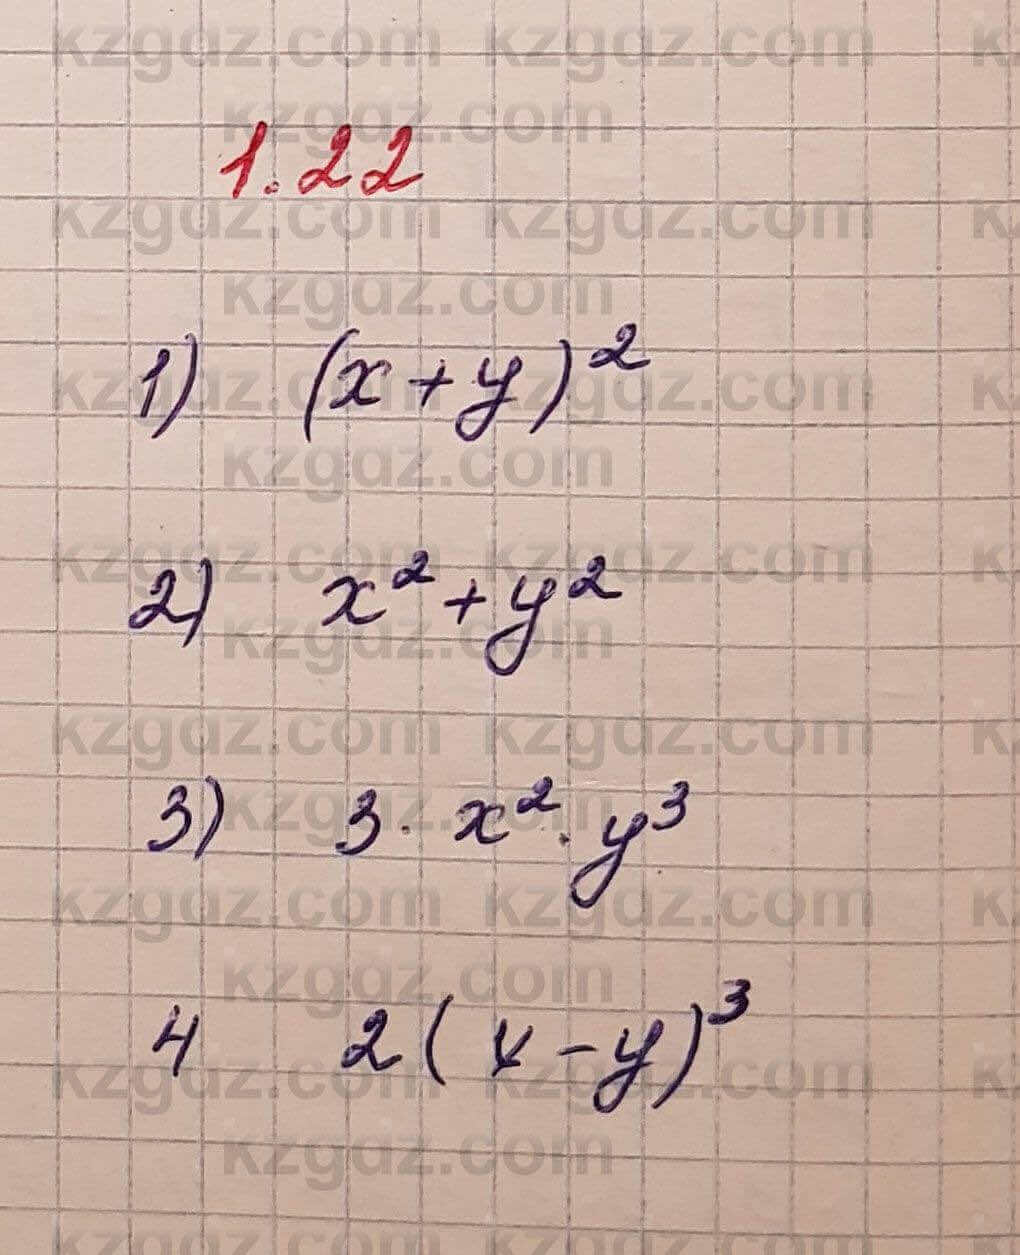 1.22
1) (x+y)²
2) x²+y²
3) 3·x²·y³
4 2(x-y)³
kzgdz.com